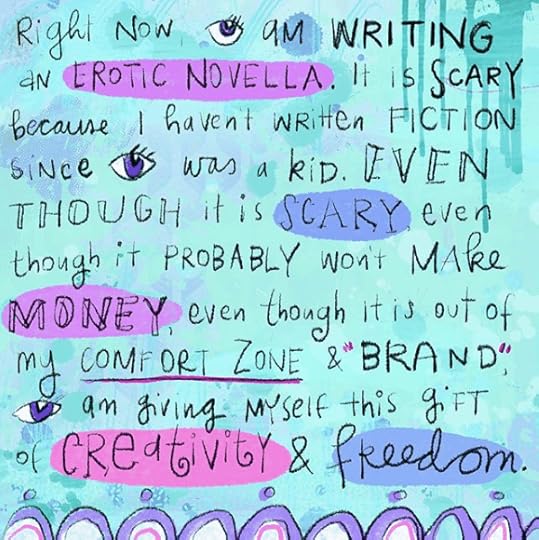 Right Now, 👁 am WRITING
an EROTIC NOVELLA. It is SCARY
because I haven't written FICTION
since 👁 was a kid. EVEN
THOUGH it is SCARY, even
though it PROBABLY won't MAKe
MONEY, even though it is out of
my COMFORT ZONE & "BRAND",
👁 am giving myself this giFT
of CREatiViTY & freedom.